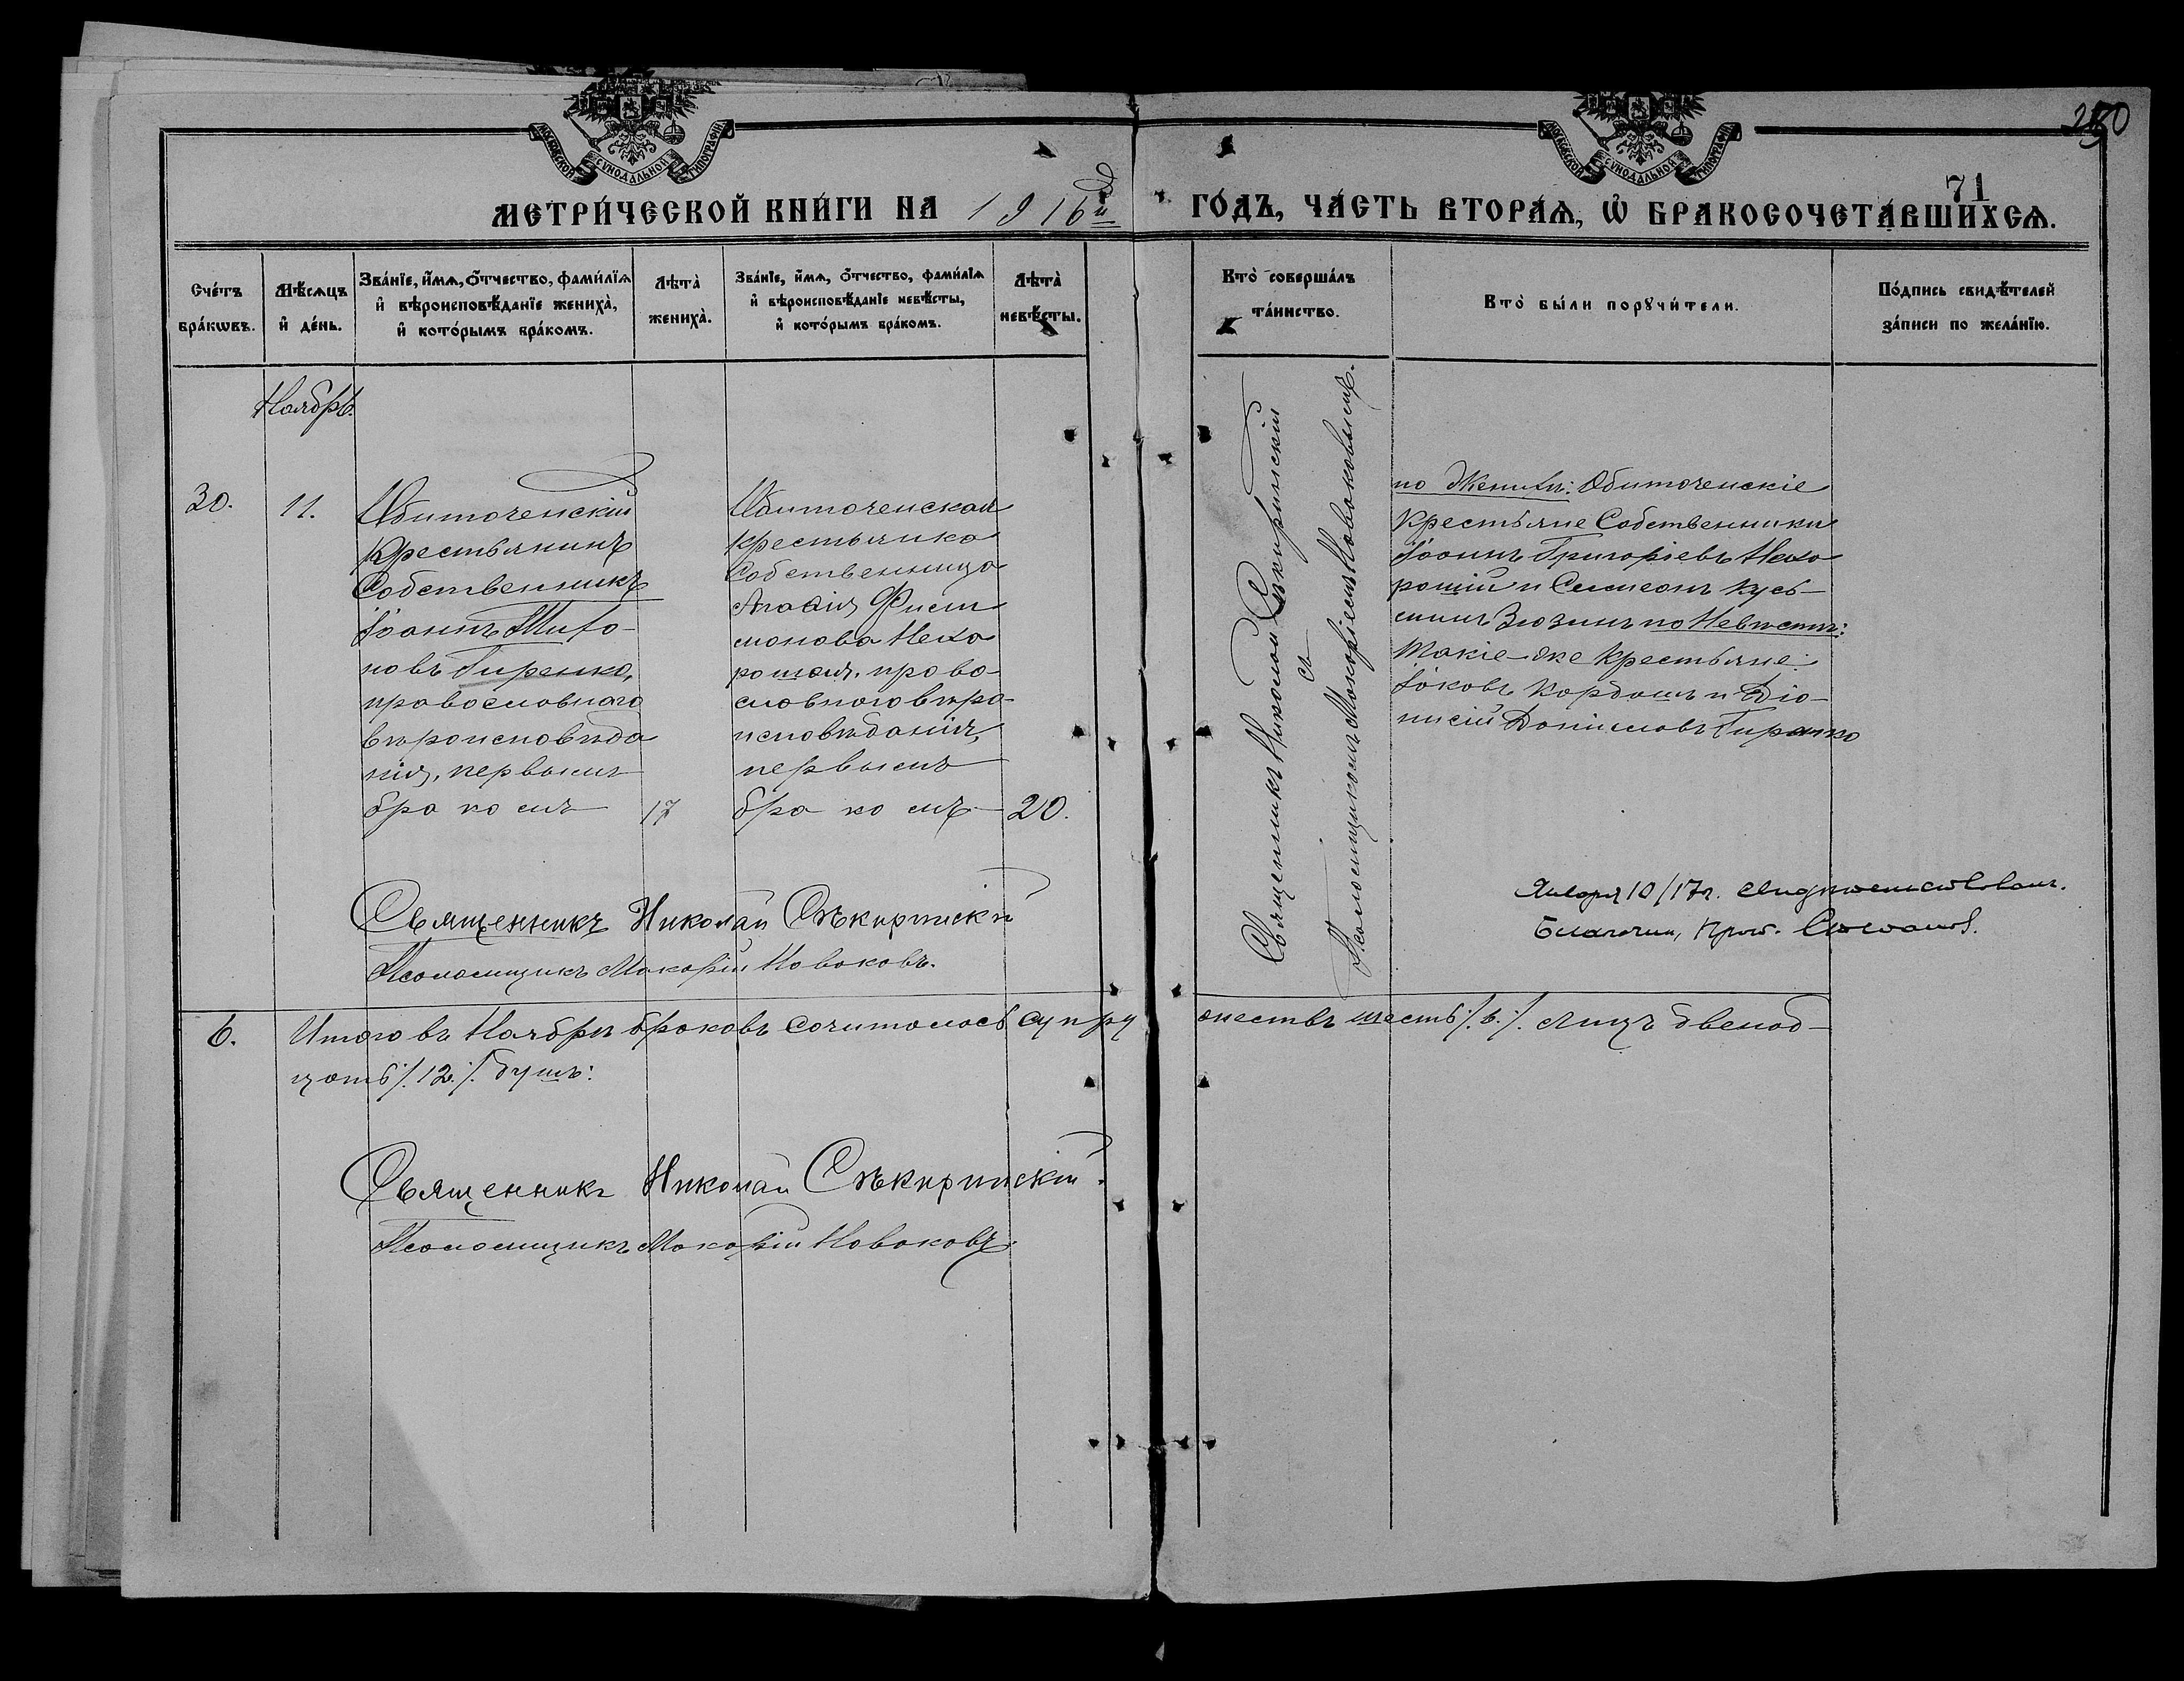 280
71
МОСКОВСКОЙ СѴНОДАЛЬНОЙ ТИПОГРАФІИ
МОСКОВСКОЙ СѴНОДАЛЬНОЙ ТИПОГРАФІИ
МЕТРИ́ЧЕСКОЙ КНИ́ГИ НА 1916й ГО́ДЪ, ЧА́СТЬ ВТОРА́Ѧ, Ѡ҆ БРАКОСОЧЕТА́ВШИХСѦ.
Сче́тъ
бра́кѡвъ.
Мѣ́сѧцъ
и҆ де́нь.
Зва́нїе, и҆́мѧ, ѻ҆́тчество, фами́лїѧ
и҆ вѣроисповѣ́данїе жениха̀,
и҆ кото́рымъ бра́комъ.
Лѣта̀
жениха̀.
Зва́нїе, и҆́мѧ, ѻ҆́тчество, фами́лїѧ
и҆ вѣроисповѣ́данїе невѣ́сты,
и҆ кото́рымъ бра́комъ.
Лѣта̀
невѣ́сты.
Кто̀ соверша́лъ
та́инство.
Кто̀ бы́ли порꙋчи́тели.
По́дпись свидѣ́телей
за́писи по жела́нїю.
Ноябрь.
30.
11.
Обиточенскій
крестьянинъ
Собственникъ
Іоаннъ Тито-
новъ Гиренко,
православнаго
вѣроисповѣда
нія, первымъ
бракомъ
17
Обиточенская
крестьянка
Собственница
Агафія Фили
монова Нехо
рошая, право-
славнаго вѣро-
исповѣданія,
первымъ
бракомъ
20.
Священникъ Николай Сѣкиринскій
съ
Псаломщикомъ Макаріемъ Новаковымъ.
по Женихѣ: Обиточенскіе
Крестьяне Собственники
Іоаннъ Григоріевъ Нехо
рошій и Симеонъ Кузь-
минъ Зюзинъ по Невѣстѣ:
Такіе-же крестьяне
Іаковъ Кардашъ и Діо-
нисій Даніиловъ Гиренко
Священникъ Николай Сѣкиринскій
Псаломщикъ Макарій Новаковъ.
Января 10/17г. свидѣтельствовалъ.
Благочин. Прот.
6.
Итого въ Ноябрѣ браковъ сочиталось супру жествъ шесть /.6./. лицъ двенад-
цать /.12./. душъ:
Священникъ Николай Сѣкиринскій.
Псаломщикъ Макарій Новаковъ.